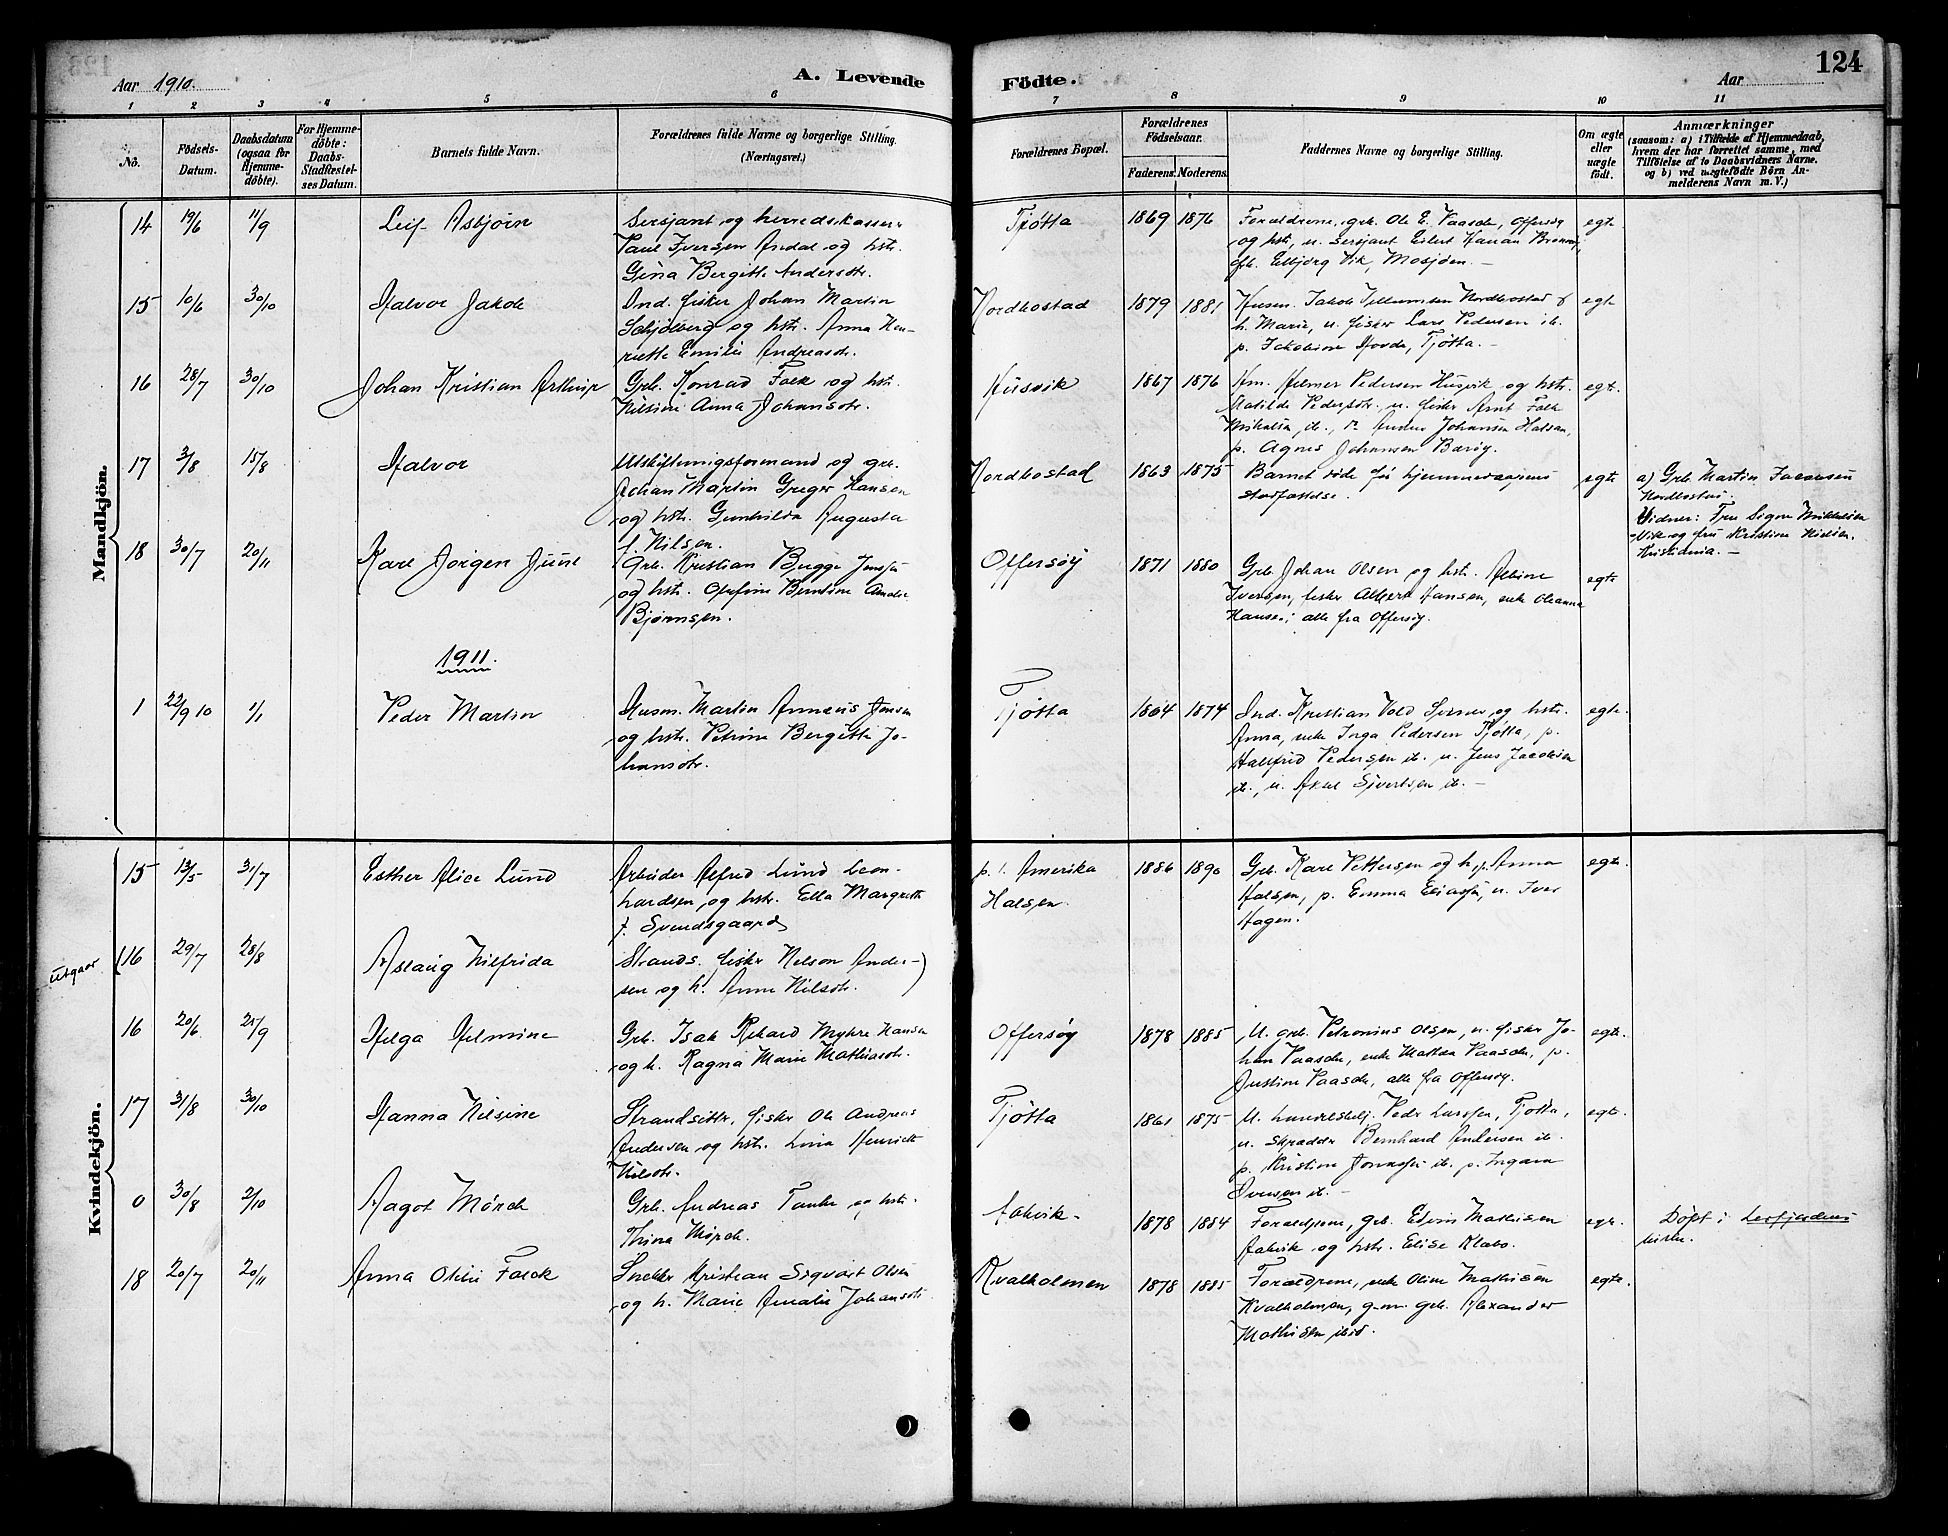 Aar 1910.
A. Levende
Födte.
Aar
124
1 2 3 4 5 6 7 8 9 10 11
No.
Födsels-
Datum.
Daabsdatum
(ogsaa for
Hjemme-
döbte).
For Hjemme-
döbte:
Daabs-
Stadfæstel-
ses Datum.
Barnets fulde Navn.
Forældrenes fulde Navne og borgerlige Stilling
(Næringsvei.)
Forældrenes Bopæl.
Forældrenes
Födselsaar.
Faderens. Moderens.
Faddernes Navne og borgerlige Stilling.
Om ægte
eller
uægte
födt.
Anmærkninger
(saasom: a) i Tilfælde af Hjemmedaab,
hvem der har forrettet samme, med
Tilföielse af to Daabsvidners Navne.
og b) ved uægtefödte Börn An-
melderens Navn m. V.)
Mandkjön.
14 19/6 11/9 Leif Asbjörn
Sersjant og herredskasser
Paul Iversen Andal og hstr.
Gina Bergitte Andersdtr.
Tjøtta 1869 1876
Forældrene, grb. Ole E. Vaasch, Offersøy
og hstr, u. sersjant Eilert Hanan
Elbjörg Vik, Mosjøen. –
egte
15 10/6 30/10 Halvor Jakob
Ind. fisker Johan Martin
Schjölberg og hstr. Anna Hen-
riette Emilie Andreasdtr.
Nordbostad 1879 1881
Husm. Jakob Nordbostad &
h. Marie, u. fisker Lars Pedersen ib.
p. Jakobine Hovde, Tjøtta. –
egte
16 28/7 30/10 Johan Kristian Arthur
Grb. Konrad Falk og hstr.
Nilsine Anna Johansdtr.
Husvik 1867 1876
Hm. Helmer Pedersen Husvik og hstr.
Matilde Pedersdtr. u. fisker Arnt Falk
ib., Johansen Halsen,
p. Agnes Johansen Barøy.
egte.
17 3/8 15/8 Halvor
Utskiftningsformand og grb.
Johan Martin Greger Hansen
og hstr. Gunhilda Augusta
f. Nilsen.
Nordbostad 1863 1875
Barnet døde før hjemmedaapens
stadfæstelse.
egte
a) Grb. Martin
Nordbostad.
Vidner: Fru Signe
Vik og fru Kristine Nielsen,
Kristiania. –
18 30/7 20/11 Karl Jörgen Juul
Grb. Kristian Bugge
og hstr. Josefine Berntine Amalie
Bjørnsen.
Offersøy 1871 1880
Grb. Johan Olsen og hstr. Albine
Iversen, fisker Albert Hansen, enke Oleanna
Hansen; alle fra Offersøy.
egte
1911.
1 22/9 10 1/1 Peder Martin
Husm. Martin Annæus Jensen
og hstr. Petrine Bergitte Jo-
hansdtr.
Tjøtta 1864 1874
Ind. Kristian Vold og hstr.
Anna, enke Inga Pedersen Tjøtta, p.
Halfrid Pedersen ib. u. Jens Jacobsen
ib., u. Aksel Sivertsen ib. –
egte.
Kvindekjön.
15 13/5 31/7 Esther Alice Lund
Arbeider Alfred Lund Leon-
hardsen, og hstr. Ella Margrethe
f. Svendsgaard
p. t. Amerika
Halsen
1886 1890
Grb. Karl Pettersen og h, p. Anna
Halsen, p. Emma u. Iver
Hagen.
egte.
utgaar
(16 29/7 28/8 Aslaug Wilfrida
Strands. fisker Nelson Ander-)
sen og h. Anna Nilsdtr.
16 20/6 25/9 Helga Helmine
Grb. Isak Rikard Myhre Hansen
og h. Ragna Marie Mathiasdtr.
Offersøy 1878 1885
U. grb. Petronius Olsen, u. fisker Jo-
han Vaasch, enke Mathea Vaasch, p.
Justine Vaasch, alle fra Offersøy.
egte.
17 31/8 30/10 Hanna Nilsine
Strandsitter, fisker Ole Andreas
Andersen og hstr. Lina Henriette
Nilsdtr.
Tjøtta 1861 1875
U. handelsbetj. Peder Larssen, Tjøtta,
u. skrædder Bernhard Andersen ib.
p. Kristine ib. p.
ib. –
egte.
0 30/8 2/10 Aagot Mörch
Grb. Andreas og hstr.
Thina Mörch.
1878 1884
Forældrene, grb. Edvin Mathisen
og hstr. Elise Klæbo.
egte.
Döpt i Leirfjordens
kirke.
18 20/7 20/11 Anna Otilie Falck
Snekker Kristian Sigvart Olsen
og h. Marie Amalie Johansdtr.
Kvalholmen 1878 1885
Forældrene, enke Oline Mathisen
Kvalholmen, g.m. grb. Alexander
Mathisen ibid.
egte.